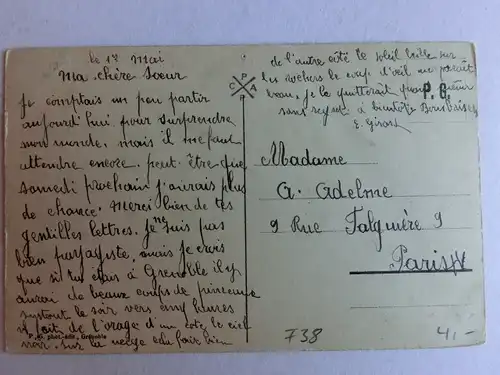 le 17 Mai
Ma chère Soeur
Je comptais un peu partir
aujourd'hui pour surprendre
mon monde, mais il me faut
attendre encore, peut-être que
samedi prochain j'aurais plus
de chance. Merci bien de tes
gentilles lettres. Je ne suis pas
bien paysagiste, mais je crois
que si tu étais à Grenoble il y
aurai de beaux coups de peinture
surtout le soir vers cinq heures
il fait de l'orage d'un coté le ciel
noir. sur la neige edu fair bien
de l'autre coté le soleil brille sur
les rochers le coup d'oeil me parait
beau, je le quitterait quand même
sans regret à bientôt Bons baisers
E. Girost
C P A P
P. G.
Madame
A. Adelme
9 Rue Falguière 9
Paris XV
P. G. phot.-édit., Grenoble
738
4,-